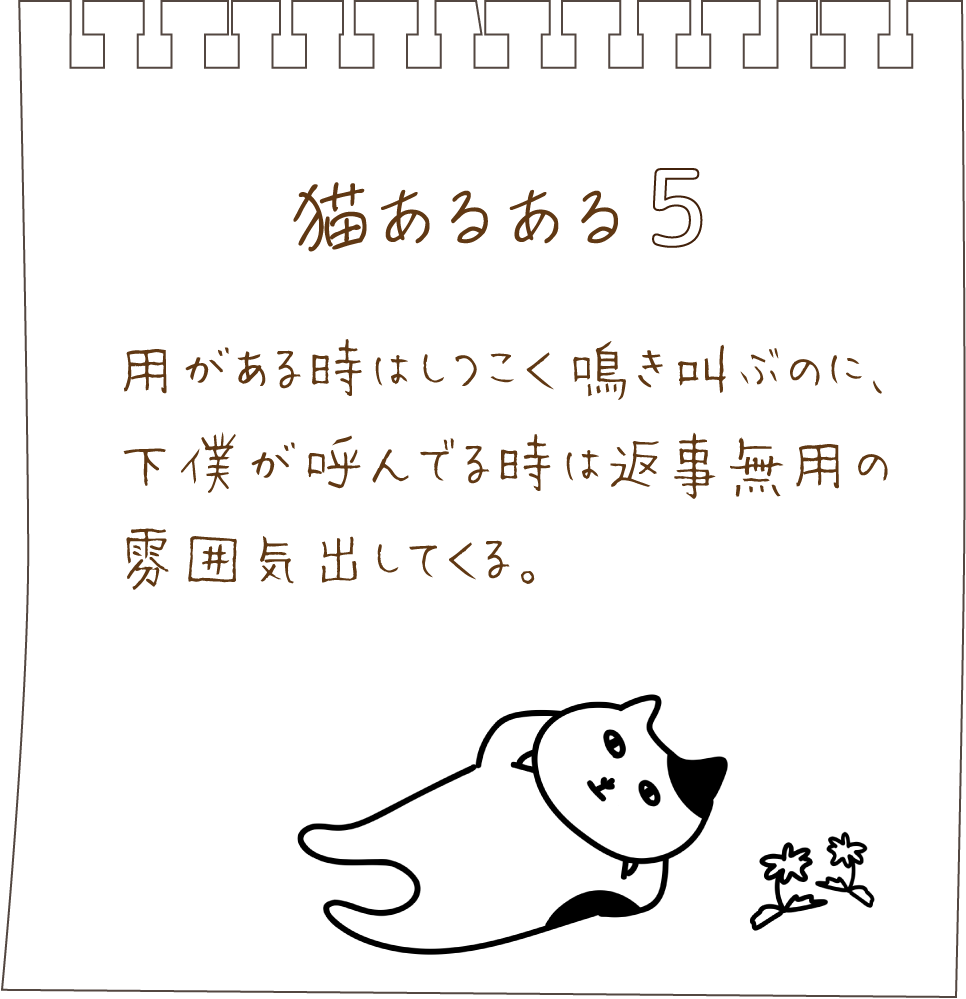 猫あるある5
用がある時はしつこく鳴き叫ぶのに、
下僕が呼んでる時は返事無用の
雰囲気出してくる。